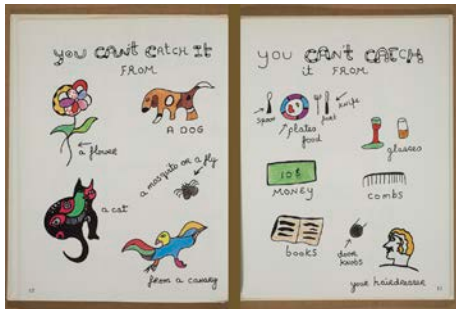 you CAN'T CATCH It
FROM
a flower
A DOG
a cat
a mosquito or a fly
from a canary
you CAN'T CATCH
it FROM
spoon
plates
food
fork
knife
glasses
10$
MONEY
combs
books
door
knobs
your hairdresser